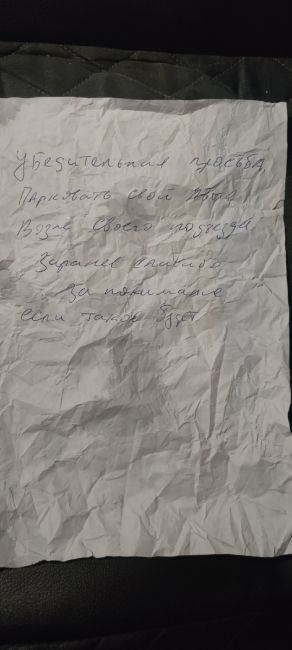 Убедительная просьба,
Парковать свой Авто
Возле своего подъезда
Заранее спасибо
за понимание
если такое будет